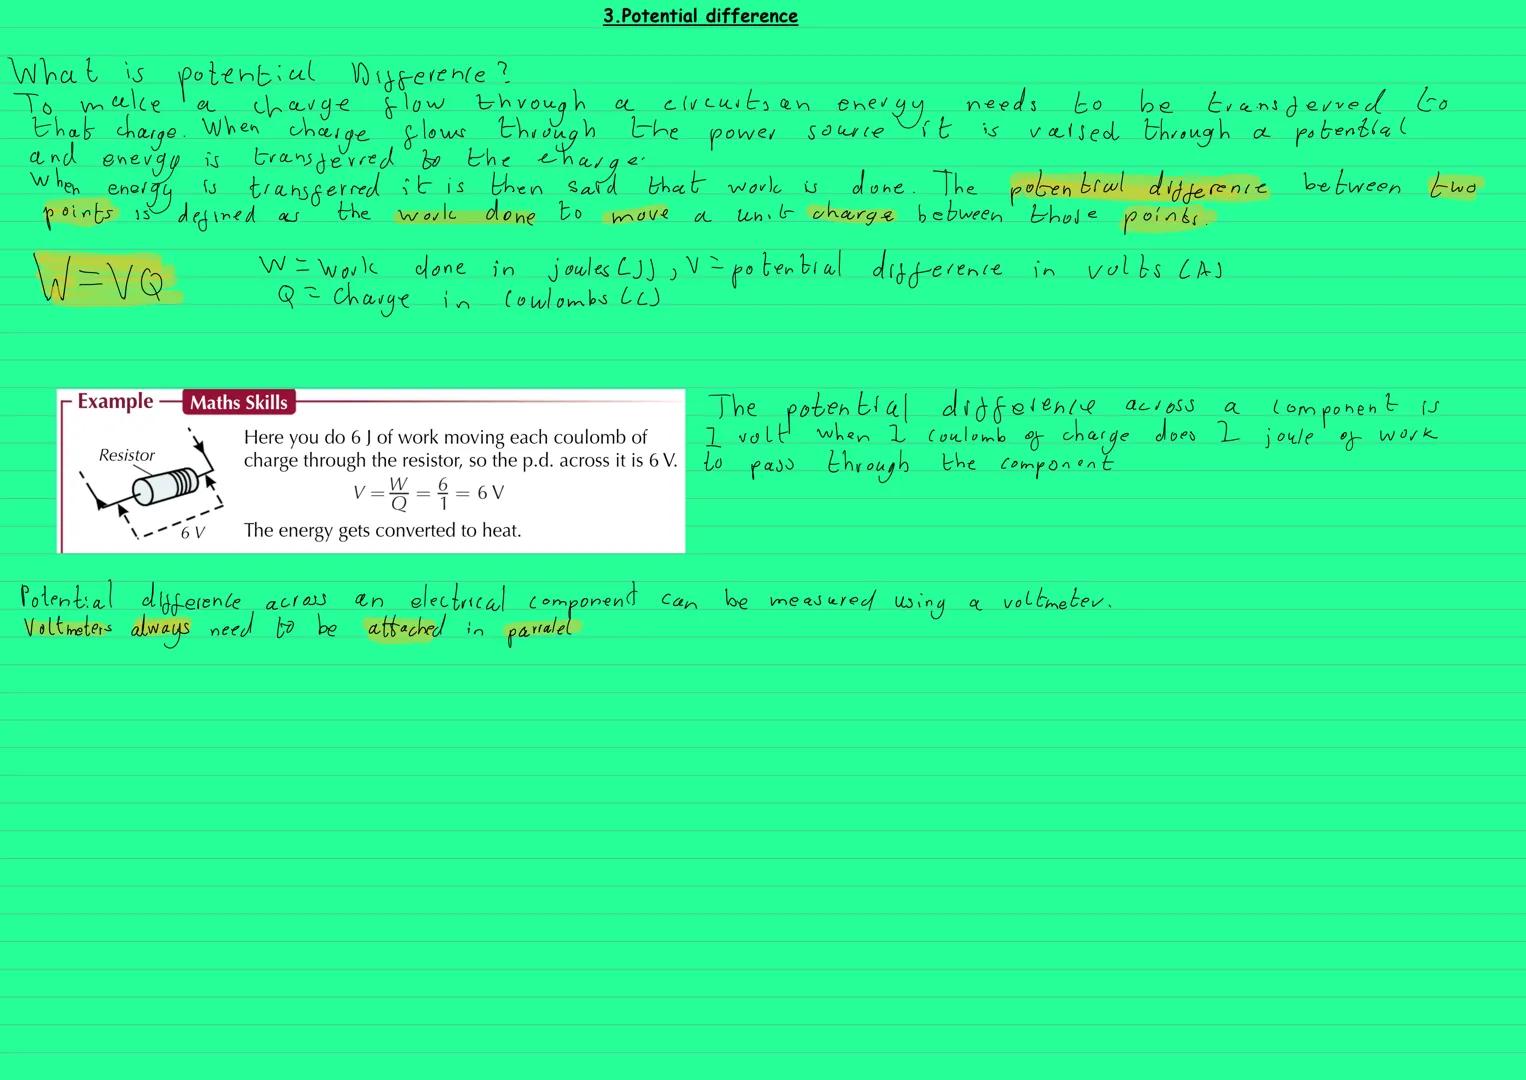 3.Potential difference
What is potential Difference?
To make a charge flow through a circuits an energy needs to be transferred to
that charge. When charge flows through the power source it is raised through a potential
and energy is transferred to the charge.
When energy is transferred it is then said that work is done. The potential difference between two
points is defined as the work done to move a unit charge between those points.
W=VQ
W = Work done in joules (J), V = potential difference in volts (A)
Q = Charge in Coulombs (C)
Example Maths Skills
Resistor
6 V
Here you do 6 J of work moving each coulomb of
charge through the resistor, so the p.d. across it is 6 V.
V = W/Q = 6/1 = 6 V
The energy gets converted to heat.
The potential difference across a component is
1 volt when 1 coulomb of charge does 1 joule of work
to pass through the component
Potential difference across an electrical component can be measured using a voltmeter.
Voltmeters always need to be attached in parralel